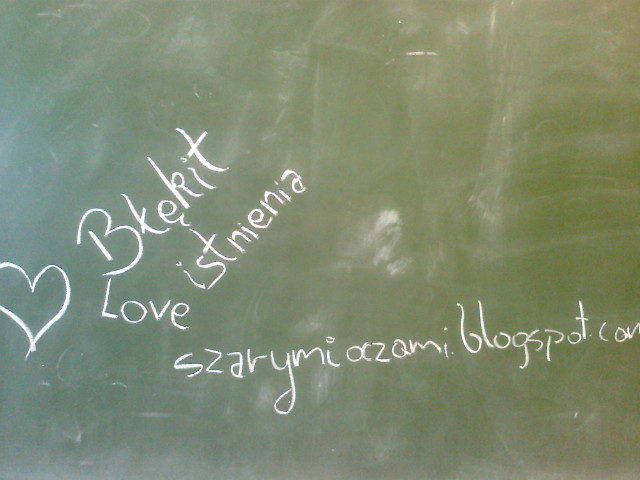 Błękit
istnienia
Love
szarymioczami.blogspot.com